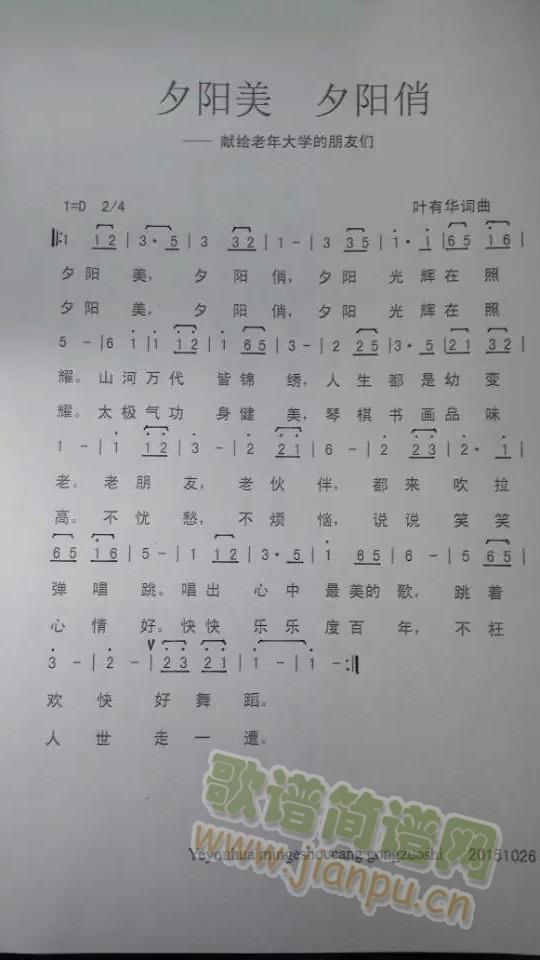 夕阳美 夕阳俏
—— 献给老年大学的朋友们
1=D 2/4 叶有华词曲
𝄆1 12 | 3· 5 | 3 32 | 1 - | 3 35 | i· i | 65 i6 |
夕阳美，夕阳俏，夕阳光辉在照
夕阳美，夕阳俏，夕阳光辉在照
5 - | 6 i | i i2 | i 65 | 3 - | 2 25 | 3· 5 | 21 32 |
耀。山河万代皆锦绣，人生都是幼变
耀。太极气功身健美，琴棋书画品味
1 - | i i2 | 3 - | 2 2i | 6 - | 2 23 | 2· i |
老。老朋友，老伙伴，都来吹拉
高。不忧愁，不烦恼，说说笑笑
65 i6 | 5 - | 1 12 | 3· 5 | i 65 | 6 - | 5 65 |
弹唱跳。唱出心中最美的歌，跳着
心情好。快快乐乐度百年，不枉
3 - | 2 - | 23 2i | i - | i - :||
欢快好舞蹈。
人世走一遭。
歌谱简谱网
www.jianpu.cn
Yeyouhua mingeshoucang gongzuoshi 20151026